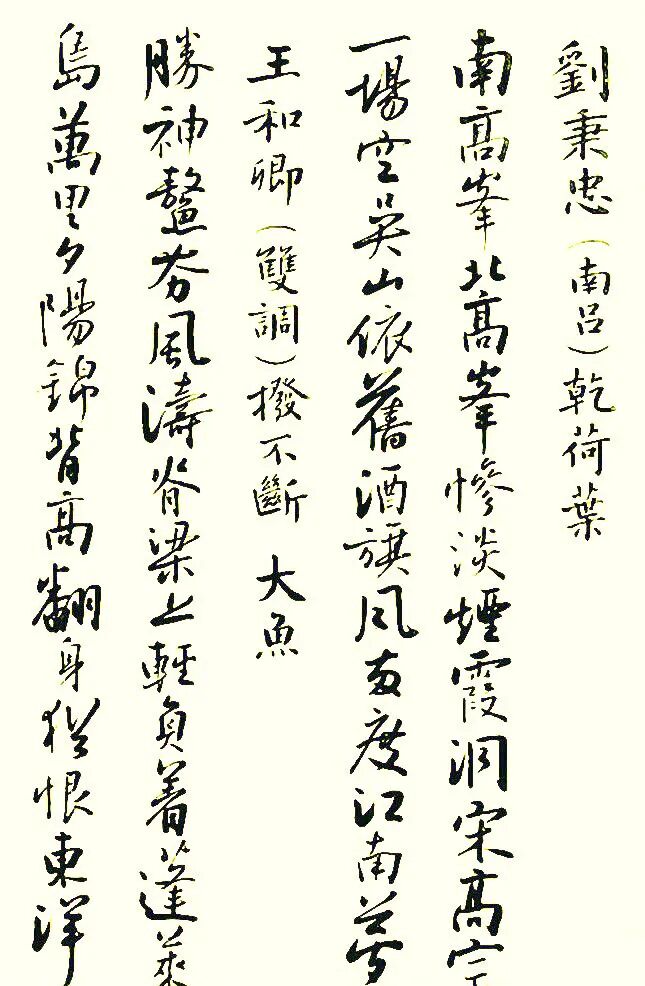 劉秉忠(南呂)乾荷葉
南高峯北高峯慘淡煙霞洞宋高宗
一場空吳山依舊酒旗風兩度江南夢
王和卿(雙調)撥不斷 大魚
勝神鼇夯風濤脊梁上輕負着蓬萊
島萬里夕陽錦背高翻身猶恨東洋